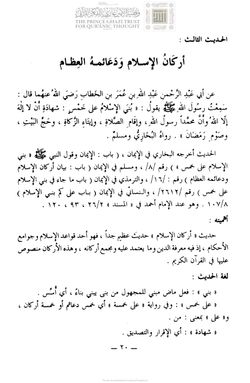 THE PRINCE GHAZI TRUST
FOR QUR'ANIC THOUGHT
الحديث الثالث :
أركان الإسلام ودعائمه العظام
عن أبي عبد الرحمن عبد الله بن عمر بن الخطاب رضي الله عنهما قال :
سمعت رسول الله ﷺ يقول : « بني الإسلام على خمس : شهادة أن لا إله
إلا الله وأن محمداً رسول الله ، وإقام الصلاة ، وإيتاء الزكاة ، وحج البيت ،
وصوم رمضان » . رواه البخاري ومسلم .
الحديث أخرجه البخاري في الإيمان ، ( باب : الإيمان وقول النبي ﷺ بني
الإسلام على خمس ) رقم /٨/ ، ومسلم في الإيمان ( باب : بيان أركان الإسلام
ودعائمه العظام ) رقم : /١٦/ ، والترمذي في الإيمان ( باب ما جاء في بني الإسلام
على خمس ) رقم /٢٦١٢/ ، والنسائي في الإيمان ( باب على كم بني الإسلام )
١٠٧/٨ . وهو عند الإمام أحمد في « المسند » ٢٦/٢ ، ٩٣ ، ١٢٠ .
أهميته :
حديث « أركان الإسلام » حديث عظيم جداً ، فهو أحد قواعد الإسلام وجوامع
الأحكام ، إذ فيه معرفة الدين وما يعتمد عليه ومجمع أركانه ، وهذه الأركان منصوص
عليها في القرآن الكريم .
لغة الحديث :
« بني » : فعل ماض مبني للمجهول من بنى يبني بناء ، أي أسس .
« على خمس » : وفي رواية « على خمسة » أي خمس دعائم أو خمسة أركان ،
و« على » بمعنى : من .
« شهادة » : أي الإقرار والتصديق .
— ٢٠ —